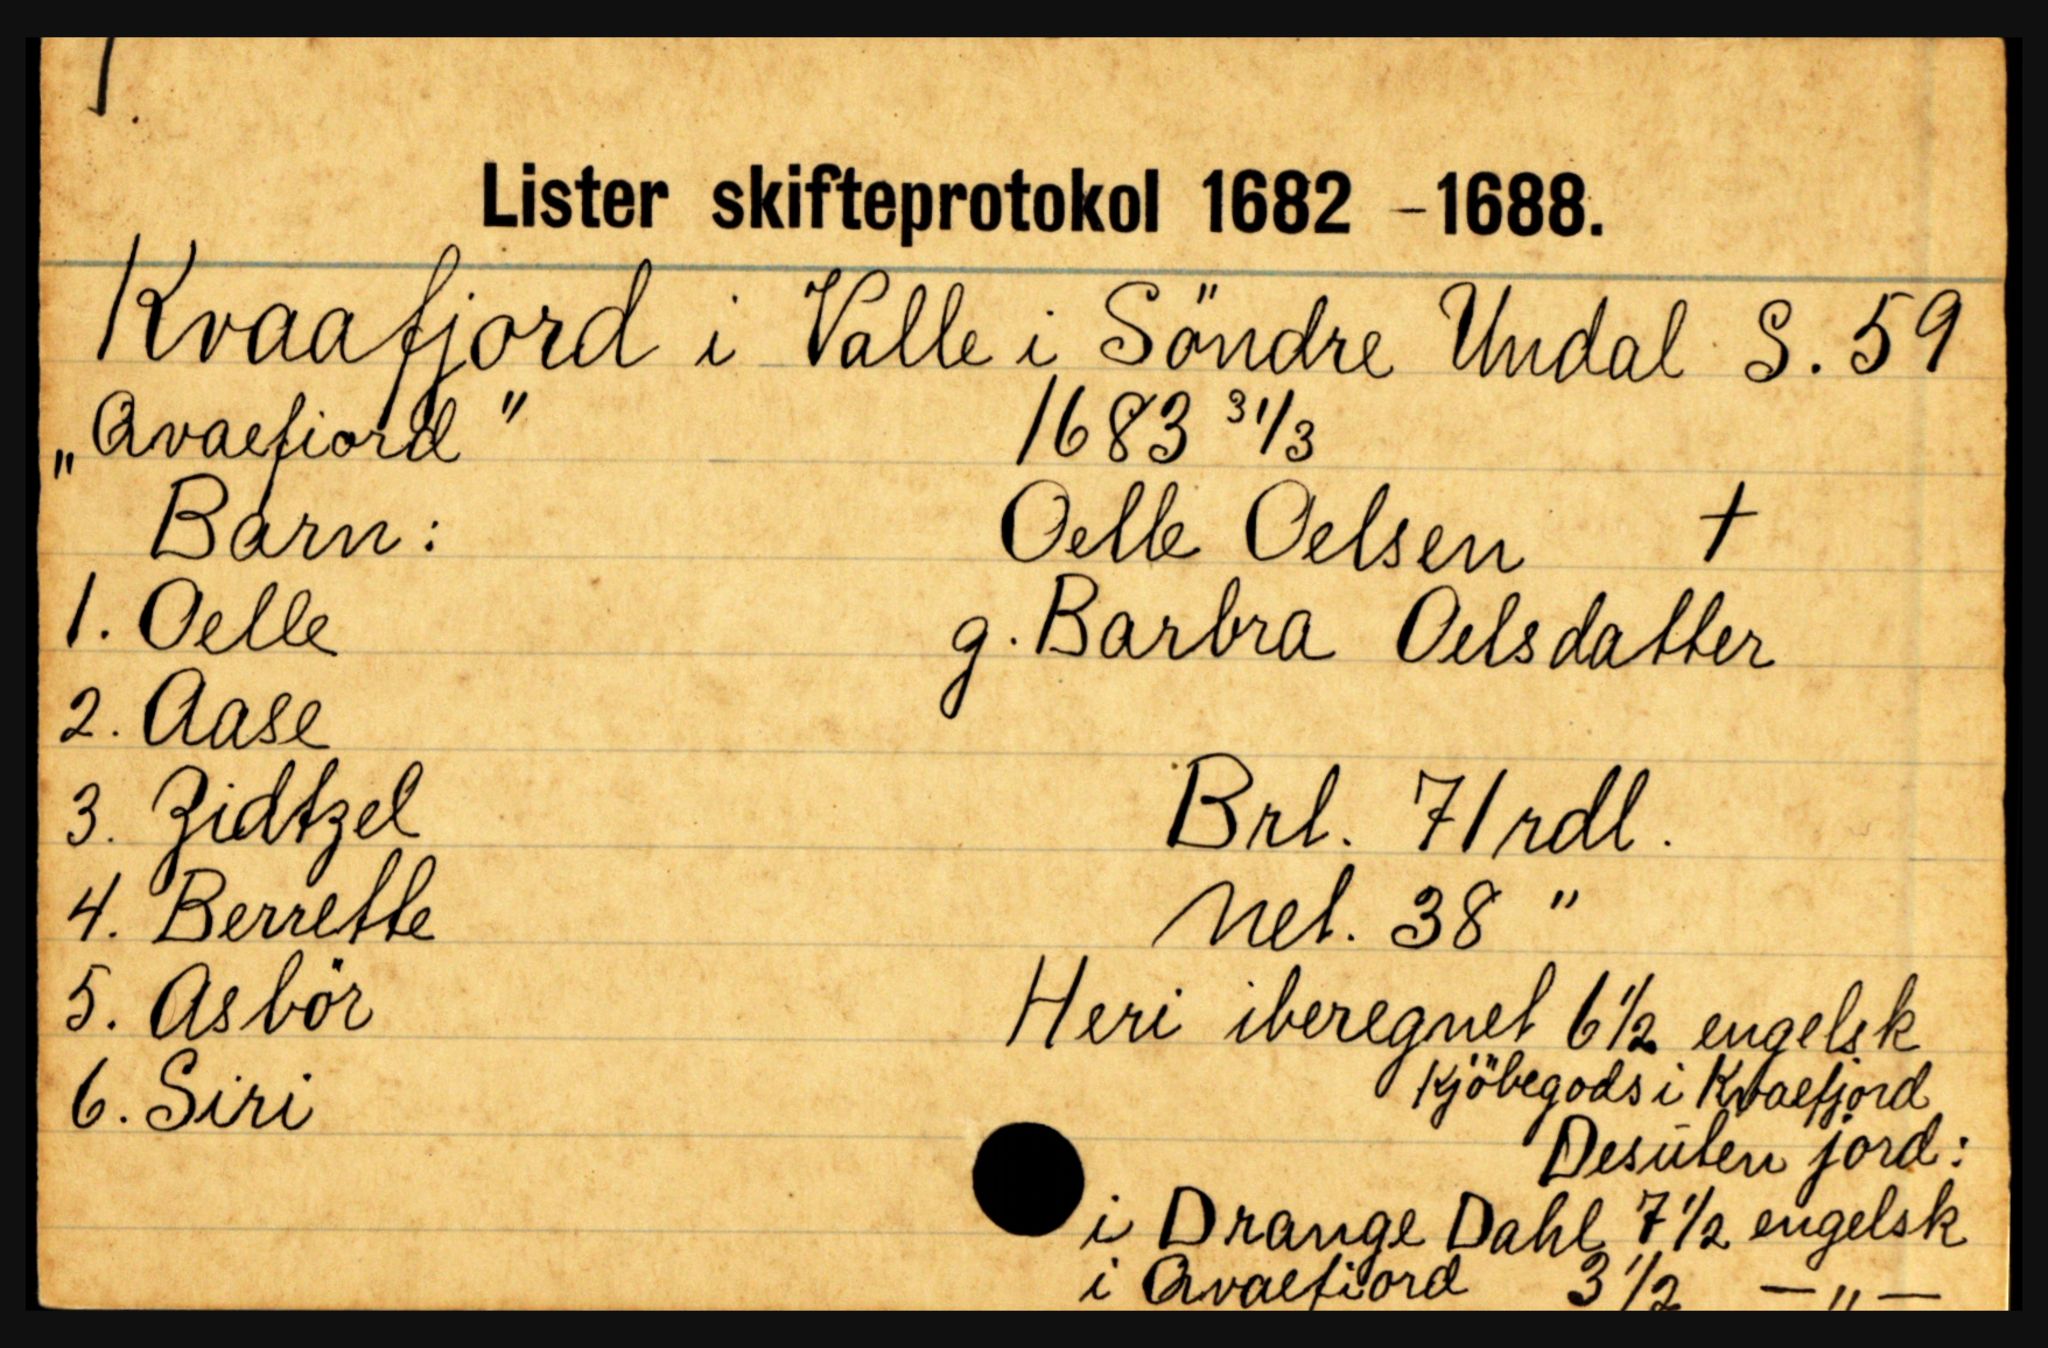 1.
Lister skifteprotokol 1682 - 1688.
Kvaafjord i Valle i Söndre Undal S. 59
„Qvaefiord" 1683 31/3
Barn: Oelle Oelsen †
1. Oelle g. Barbra Oelsdatter
2. Aase
3. Zidtzel Brt. 71 rdl.
4. Berrette Net. 38 "
5. Asbör Heri iberegnet 6 1/2 engelsk
6. Siri kjöbegods i Kvaefjord
Desuten jord:
i Drange Dahl 7 1/2 engelsk
i Qvaefiord 3 1/2 — „ —